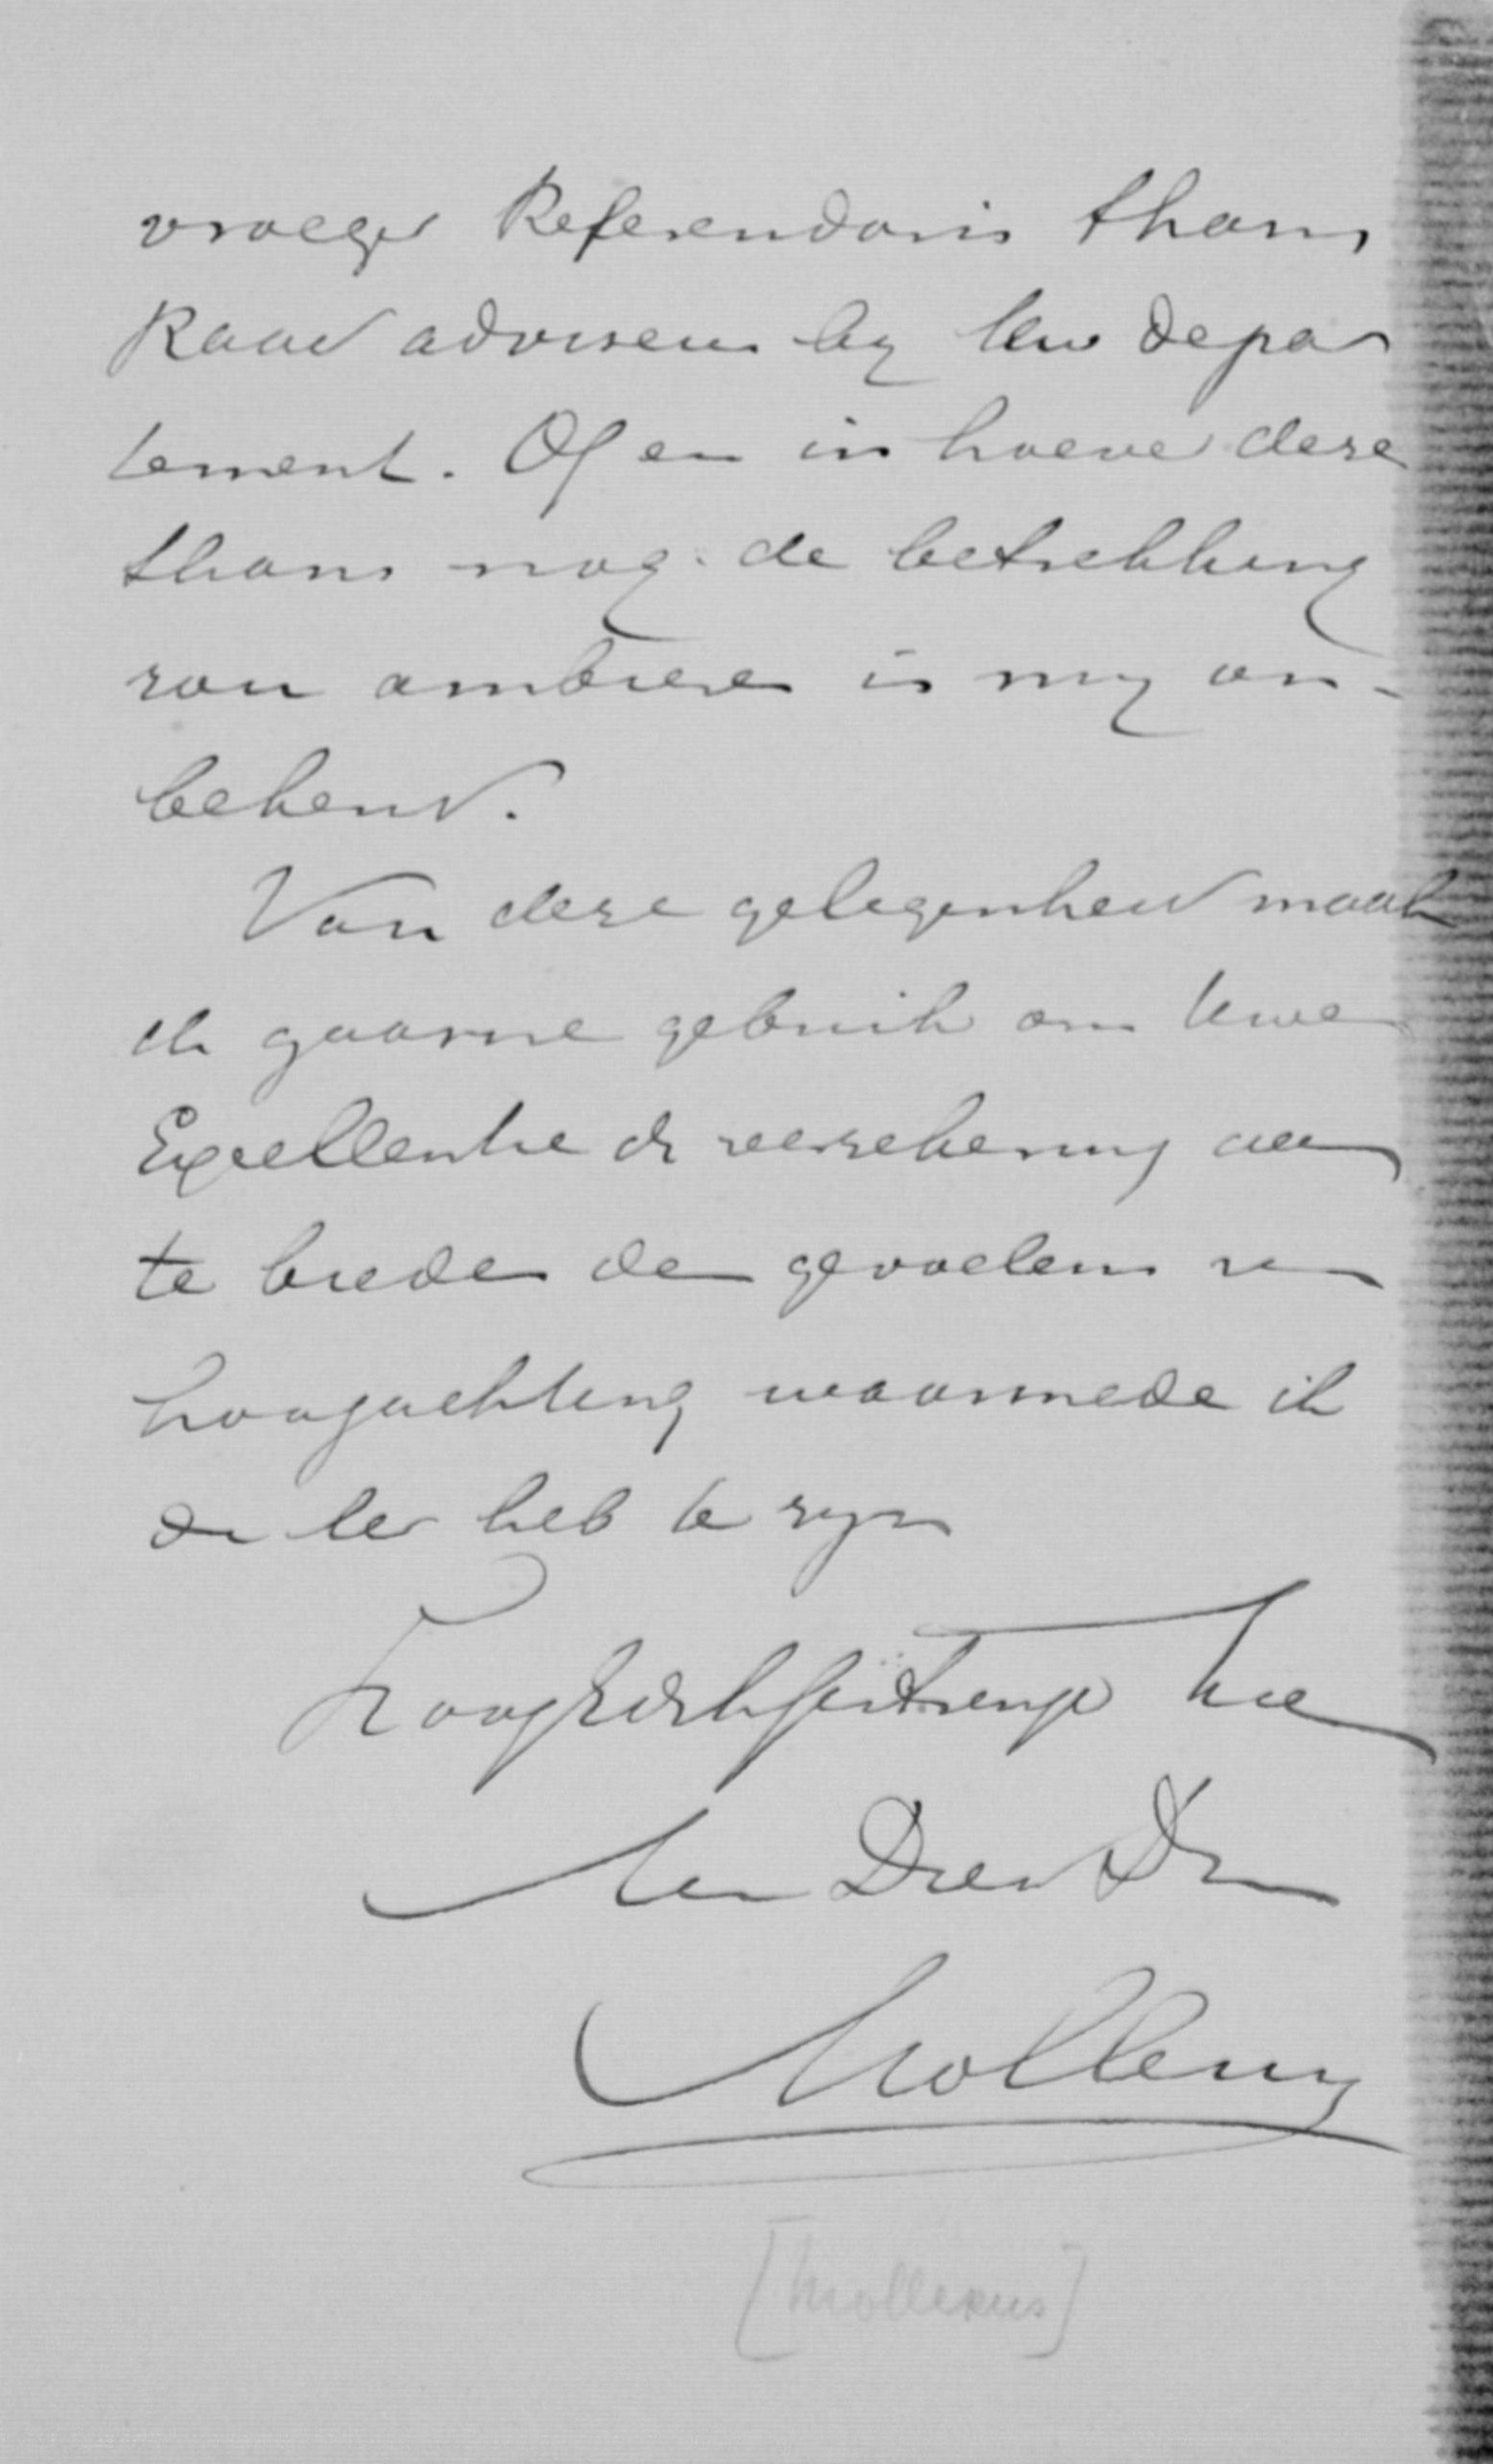 vroeger Referendaris thans
Raad adviseur by Uw Depar
tement. Of en in hoever deze
thans nog de betrekking
zou ambieren is my on-
bekend.
Van deze gelegenheid maak
ik gaarne gebruik om Uwe
Excellentie de verzekering aan
te bieden der gevoelens van
hoogachting waarmede ik
de eer heb te zyn
HoogEdelGestrenge Heer
Uw Dien Dr
Mollerus
[Mollerus]